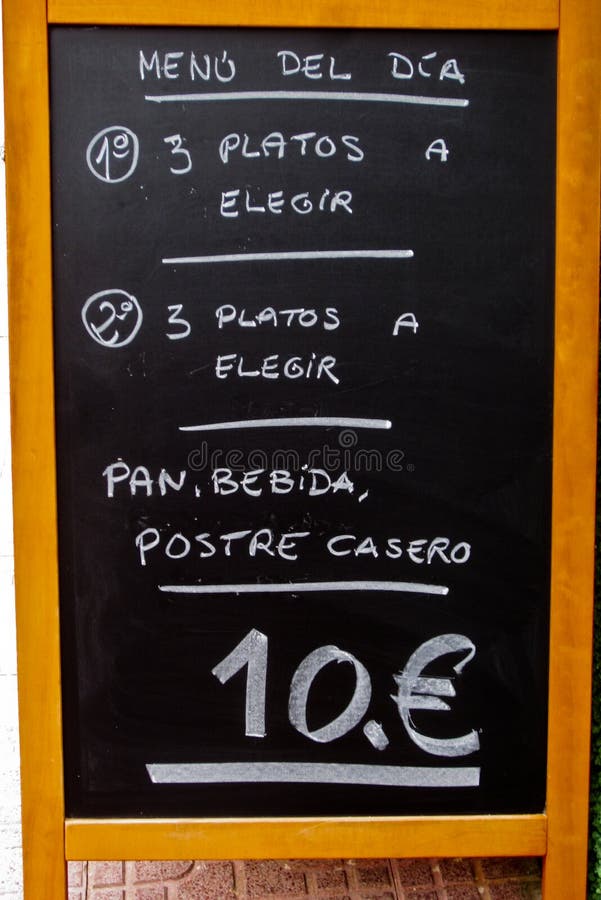 MENÚ DEL DÍA
1º 3 PLATOS A
ELEGIR
2º 3 PLATOS A
ELEGIR
dreamstime.com
PAN, BEBIDA,
POSTRE CASERO
10.€